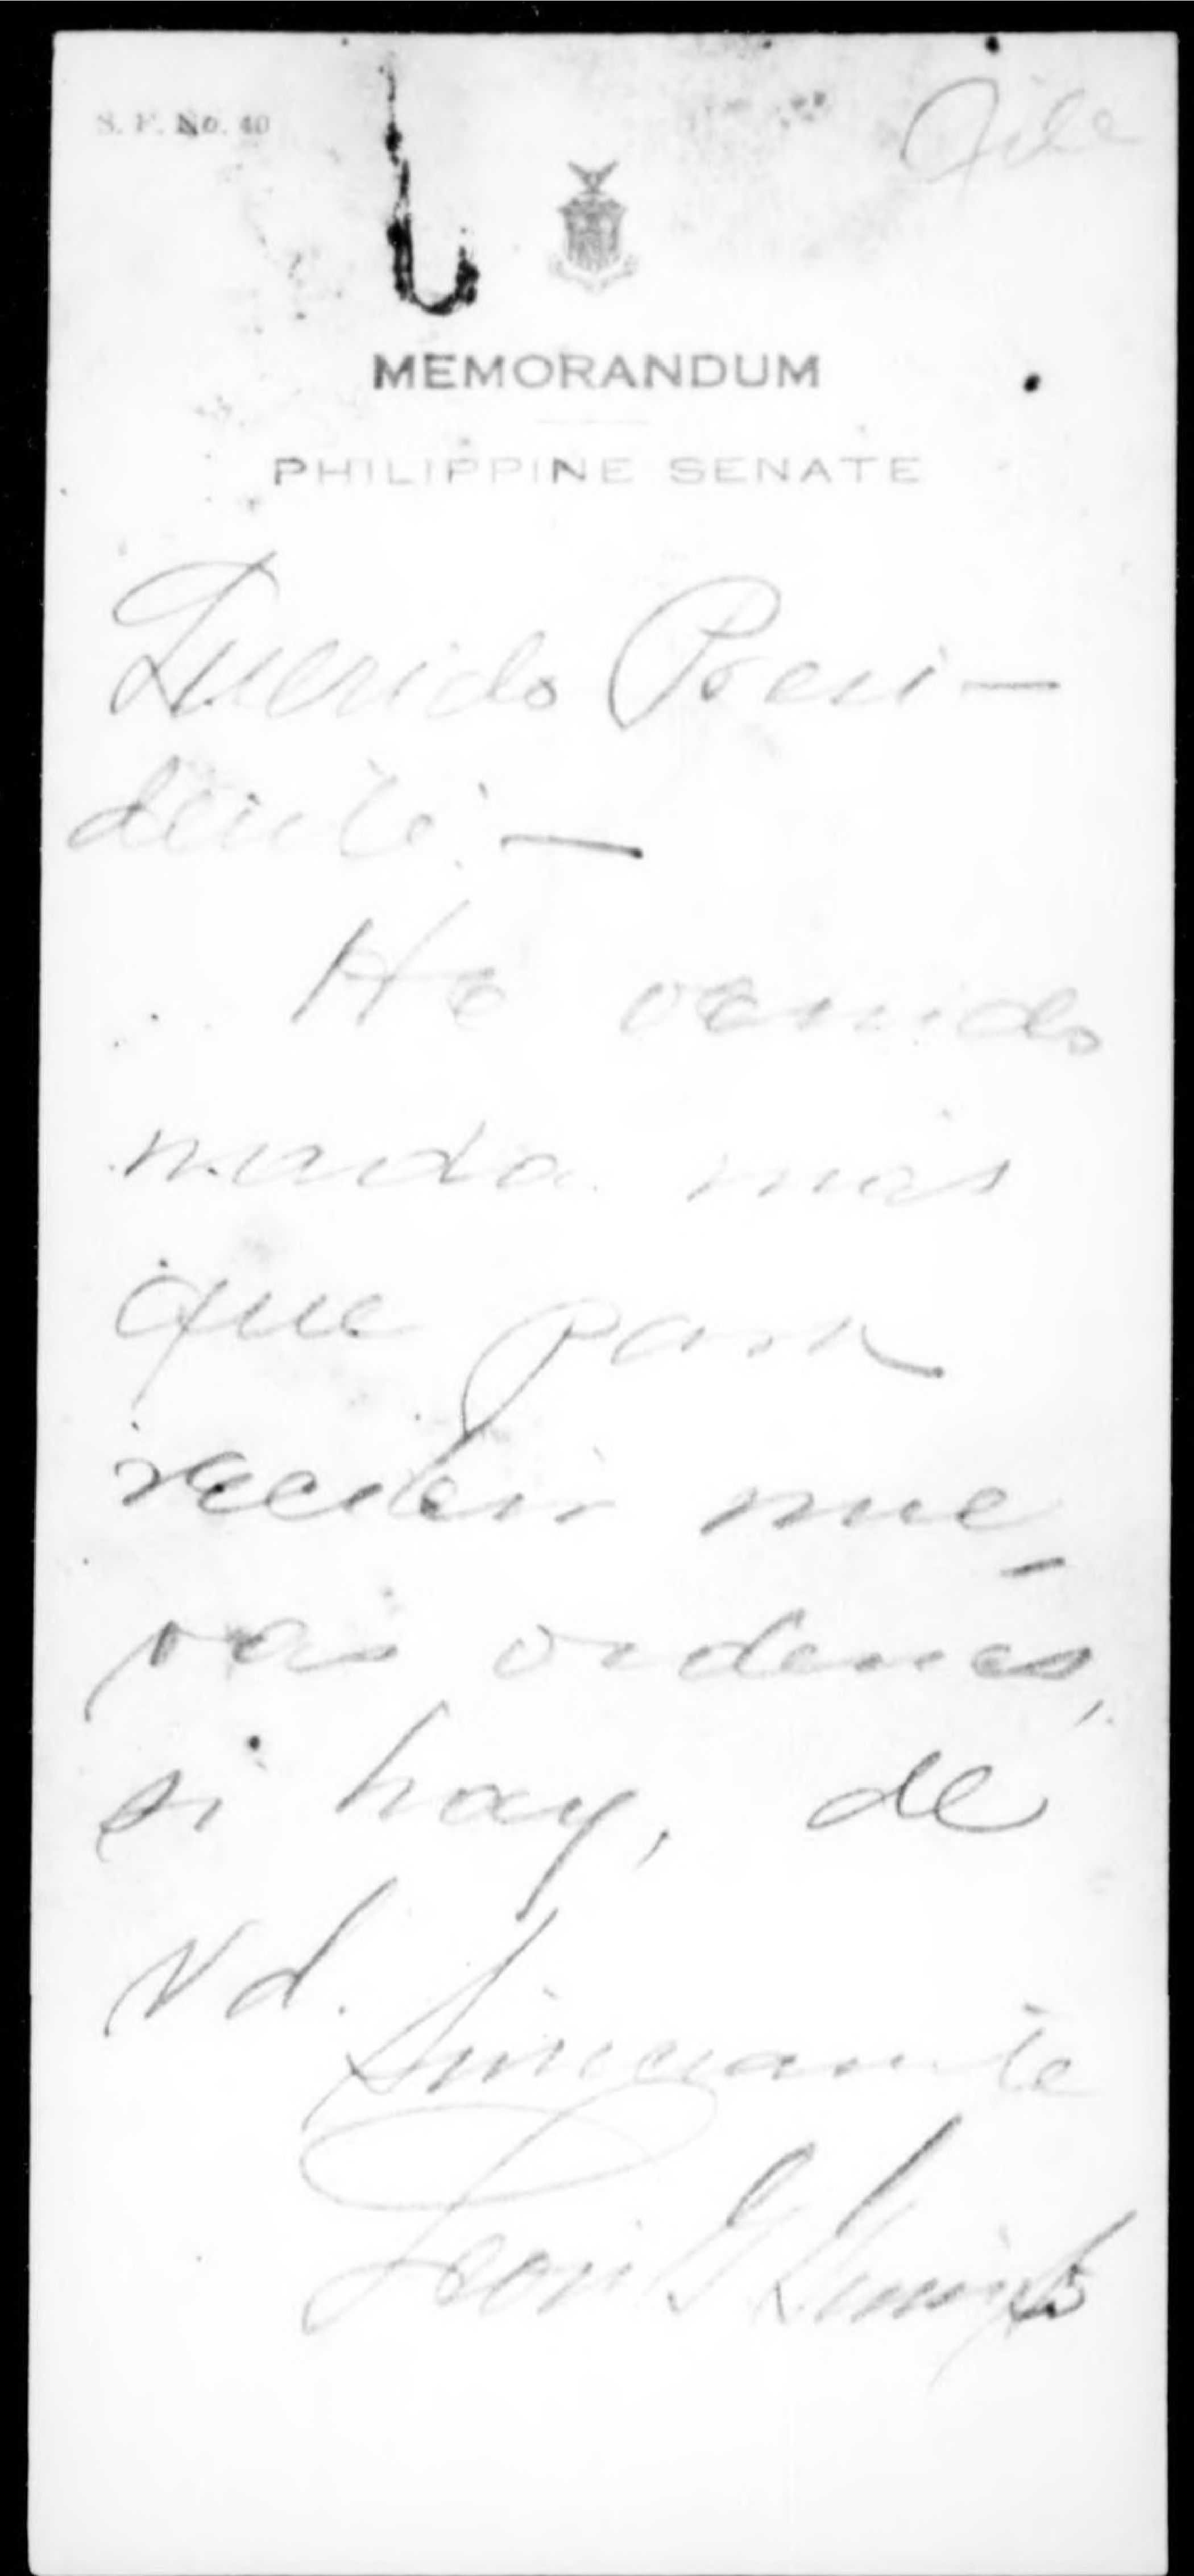 S. F. No. 40
File
MEMORANDUM
PHILIPPINE SENATE
Querido Presi-
dente:—
He venido
nada más
que para
recibir nue-
vas ordenes,
si hay, de
Vd.
Sinceramte
Leon G